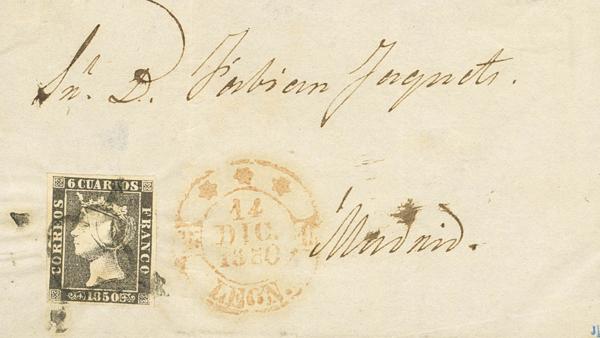 Sr. D. Fabian Jaquets.
6 CUARTOS
CORREOS
FRANCO
1850
14
DIC.
1850
LEON.
Madrid.